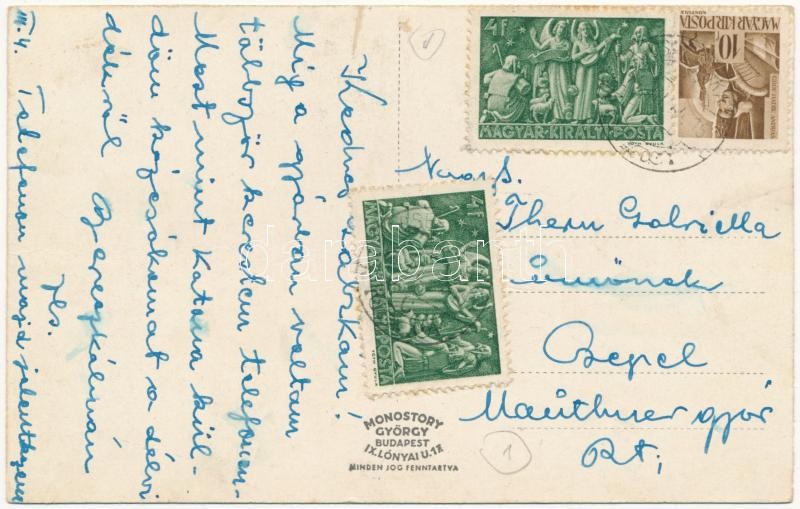 Kedves Gabikám!
Míg a gyárban voltam
többször kerestem telefonon
Most mint katona kül-
döm kézcsókomat a délvi
dékről Bereczkálmán
Ifs.
III. 4. Telefonon majd jelentkezem
Nagys.
Thern Gabriella
Csepel
Mauthner gyár
Rt;
4F
MAGYAR KIRÁLYI POSTA
10f
MAGYAR KIR. POSTA
4F
MAGYAR KIRÁLYI POSTA
MONOSTORY
GYÖRGY
BUDAPEST
IX. LÓNYAI U. 17
MINDEN JOG FENNTARTVA
1
darabanth